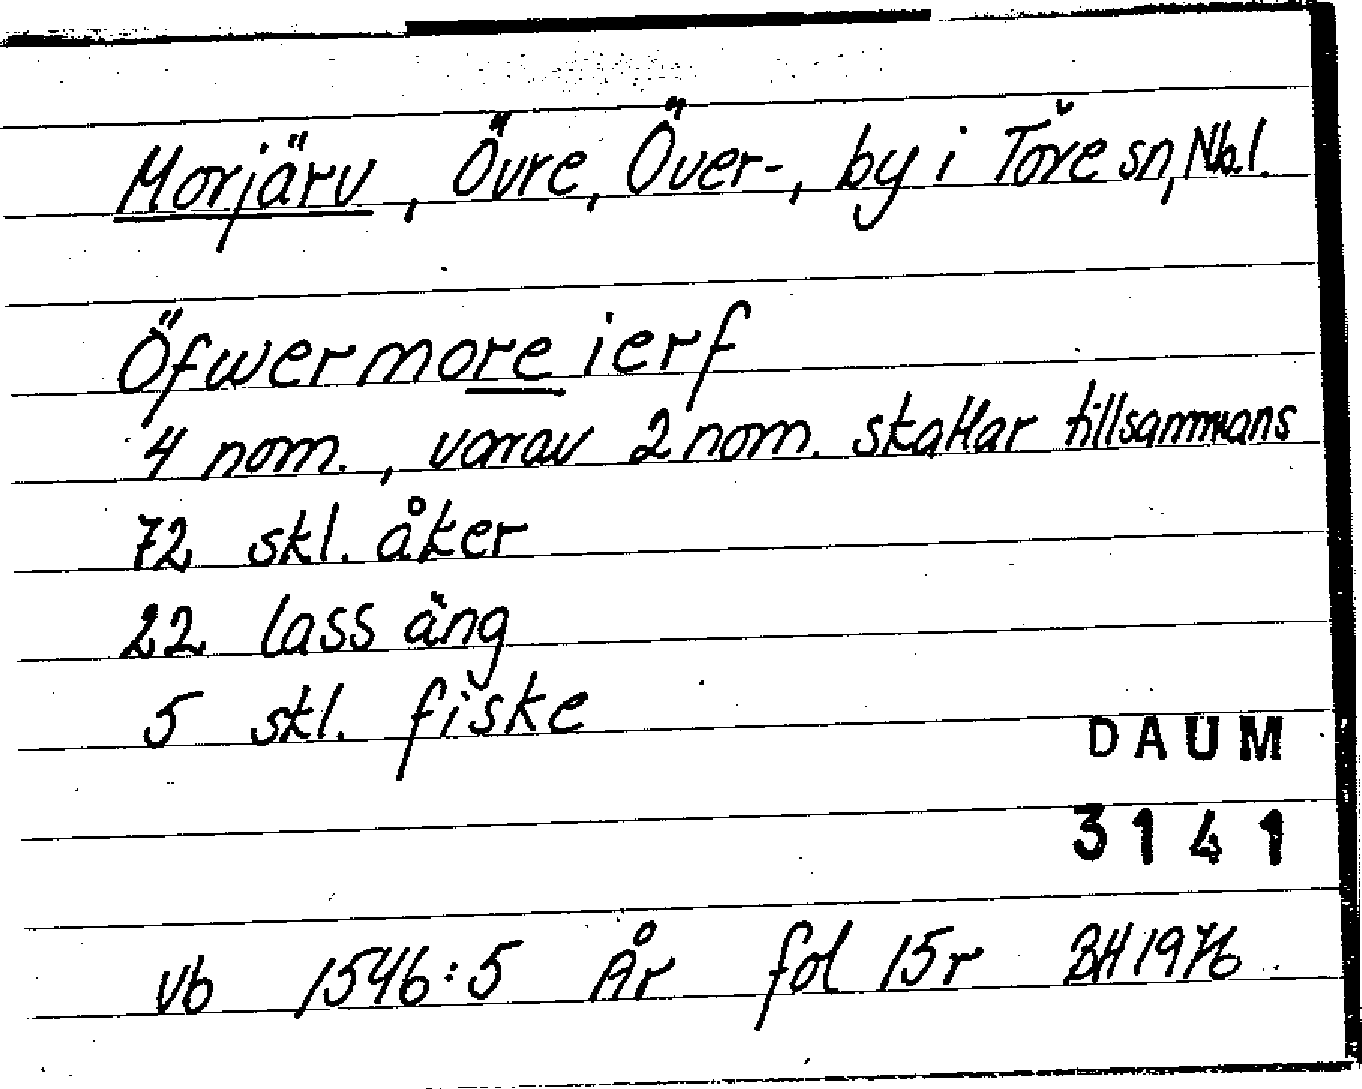 Morjärv, Övre, Över-, by i Töre sn, Nb.l.
Öfwermore ierf
4 nom., varav 2 nom. skattar tillsammans
72 skl. åker
22 lass äng
5 skl. fiske
DAUM
3141
Vb 1546:5 År fol 15r BH 1976